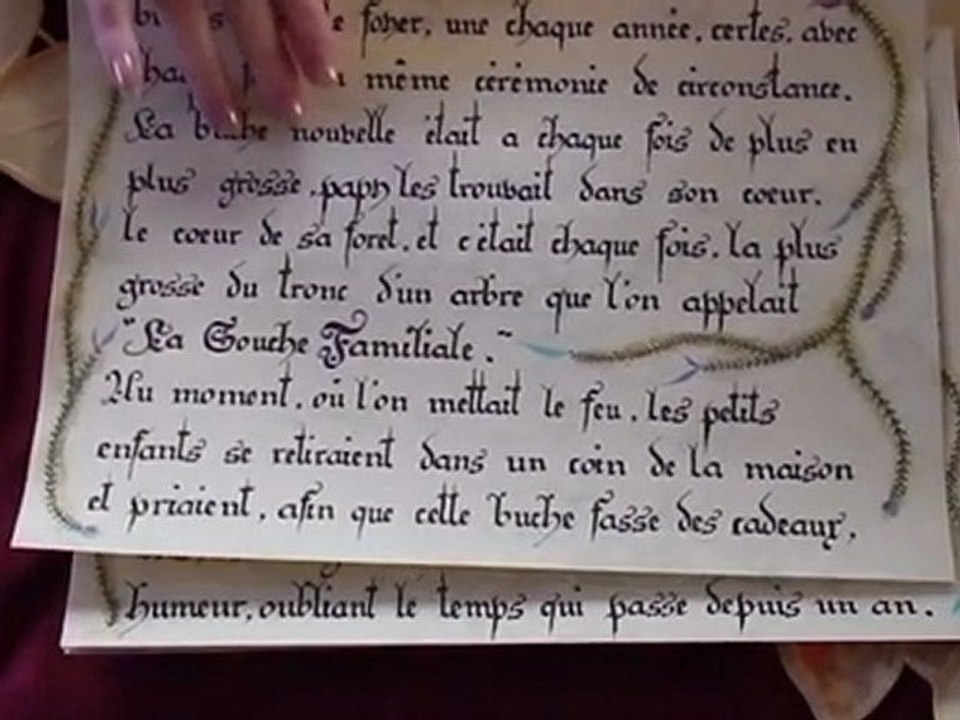 foyer, une chaque année, certes, avec
même cérémonie de circonstance.
La buche nouvelle était a chaque fois de plus en
plus grosse, papy les trouvait dans son coeur.
le coeur de sa foret, et c'était chaque fois, la plus
grosse du tronc d'un arbre que l'on appelait
"La Souche Familiale."
Au moment, où l'on mettait le feu, les petits
enfants se retiraient dans un coin de la maison
et priaient, afin que cette buche fasse des cadeaux,
humeur, oubliant le temps qui passe depuis un an.